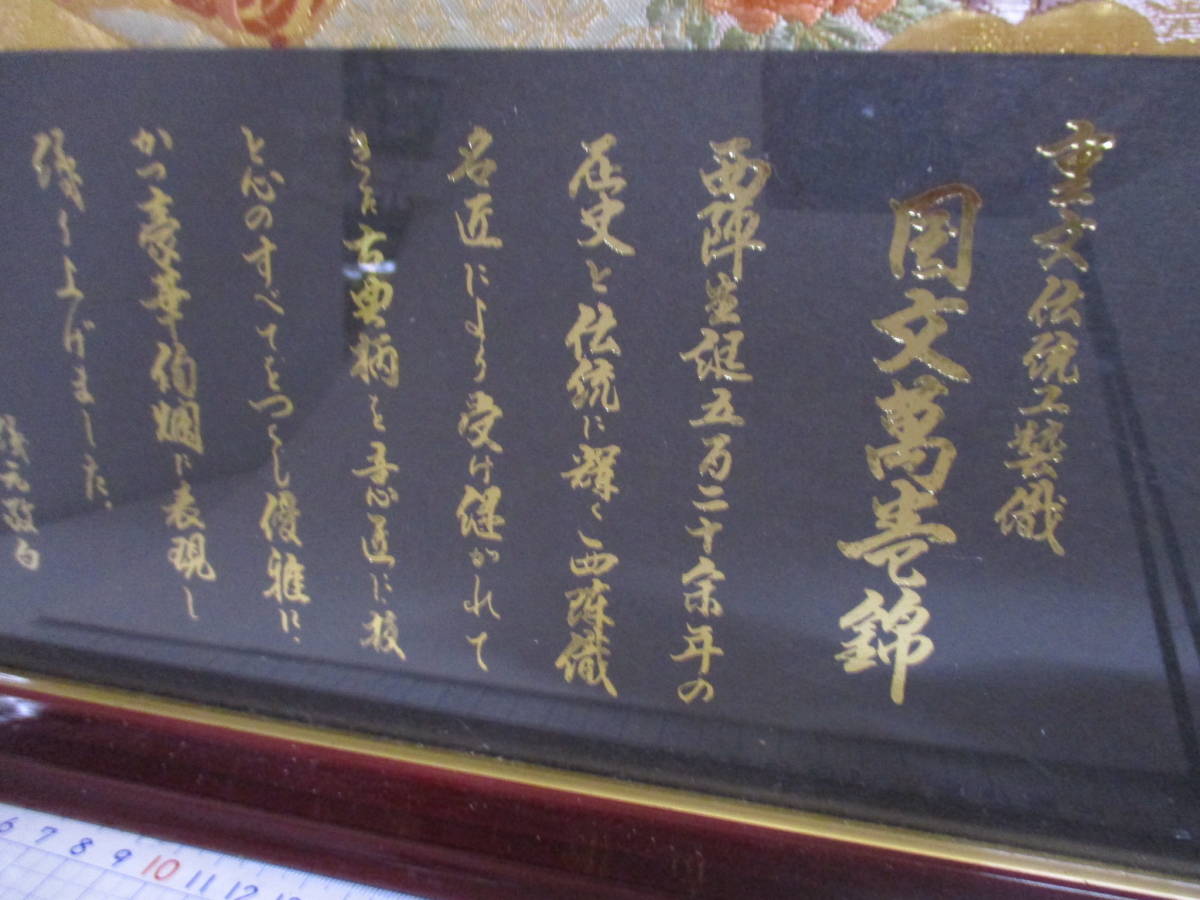 重文伝統工藝織
国文萬巻錦
西陣生誕五百二十余年の
歴史と伝統に輝く西陣織
名匠により受け継がれて
きた古典柄を意匠に技
と心のすべてをつくし優雅に、
かつ豪華絢爛に表現し
織り上げました。
織元敬白
6 7 8 9 10 11 12